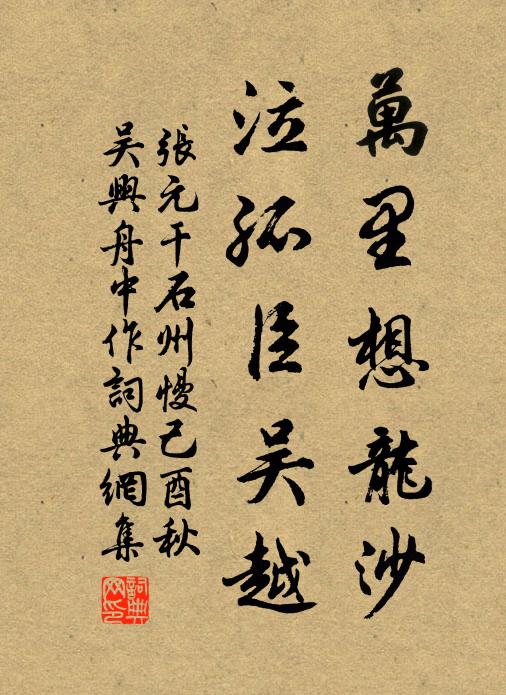 萬里想龍沙
泣孤臣吳越
張元干石州慢己酉秋
吴興舟中作詞典網集
詞典
网印